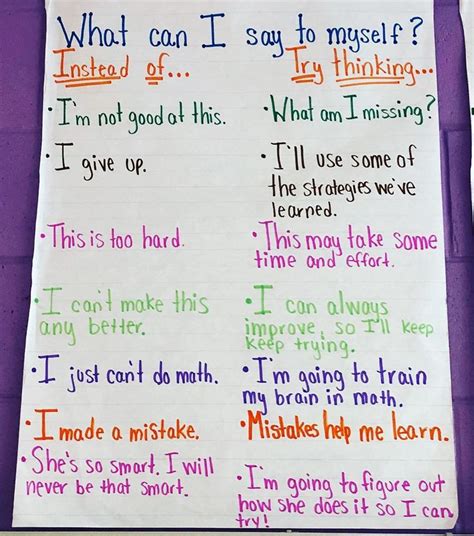 What can I say to myself?
Instead of... Try thinking...
• I'm not good at this. • What am I missing?
• I give up. • I'll use some of
the strategies we've
learned.
• This is too hard. • This may take some
time and effort.
• I can't make this • I can always
any better. improve, so I'll keep
keep trying.
• I just can't do math. • I'm going to train
my brain in math.
• I made a mistake. • Mistakes help me learn.
• She's so smart. I will
never be that smart. • I'm going to figure out
how she does it so I can
try!